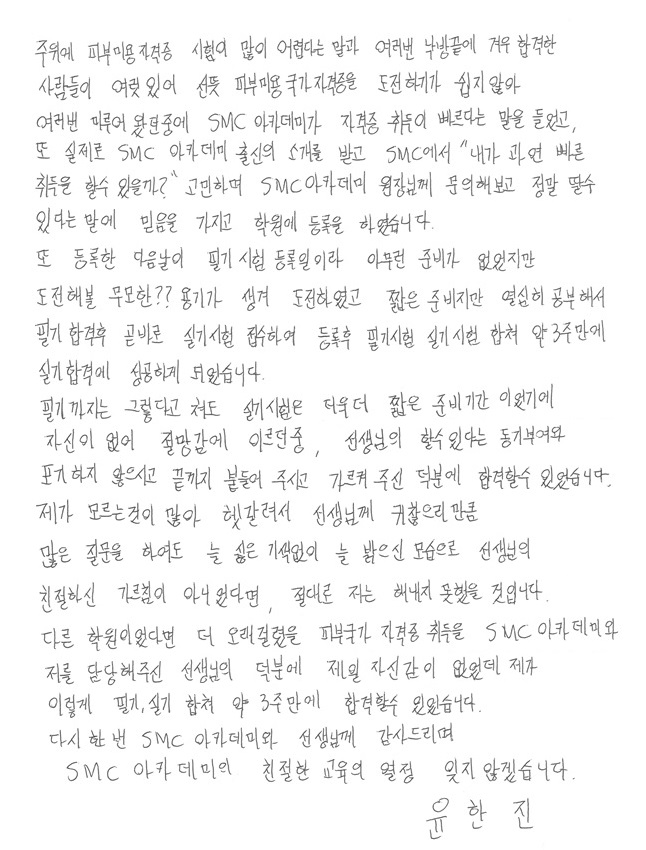 주위에 피부미용자격증 시험이 많이 어렵다는 말과 여러번 낙방끝에 겨우 합격한
사람들이 여럿 있어 선뜻 피부미용국가자격증을 도전하기가 쉽지않아
여러번 미루어 왔던중에 SMC 아카데미가 자격증 취득이 빠르다는 말을 들었고,
또 실제로 SMC 아카데미 출신의 소개를 받고 SMC에서 "내가 과연 빠른
취득을 할수 있을까?" 고민하며 SMC아카데미 원장님께 문의해보고 정말 딸수
있다는 말에 믿음을 가지고 학원에 등록을 하였습니다.
또 등록한 다음날이 필기시험 등록일이라 아무런 준비가 없었지만
도전해볼 무모한?? 용기가 생겨 도전하였고 짧은 준비지만 열심히 공부해서
필기 합격후 곧바로 실기시험 접수하여 등록후 필기시험 실기시험 합쳐 약 3주만에
실기합격에 성공하게 되었습니다.
필기까지는 그렇다고 쳐도 실기시험은 더욱더 짧은 준비기간 이었기에
자신이 없어 절망감에 이르던중, 선생님의 할수있다는 동기부여와
포기하지 않으시고 끝까지 붙들어 주시고 가르켜 주신 덕분에 합격할수 있었습니다.
제가 모르는것이 많아 헷갈려서 선생님께 귀찮으리만큼
많은 질문을 하여도 늘 싫은 기색없이 늘 밝으신 모습으로 선생님의
친절하신 가르침이 아니었다면, 절대로 저는 해내지 못했을 것입니다.
다른 학원이었다면 더 오래걸렸을 피부국가 자격증 취득을 SMC 아카데미와
저를 담당해주신 선생님의 덕분에 제일 자신감이 없었데 제가
이렇게 필기, 실기 합쳐 약 3주만에 합격할수 있었습니다.
다시 한 번 SMC 아카데미와 선생님께 감사드리며
SMC 아카데미의 친절한 교육의 열정 잊지 않겠습니다.
윤한진